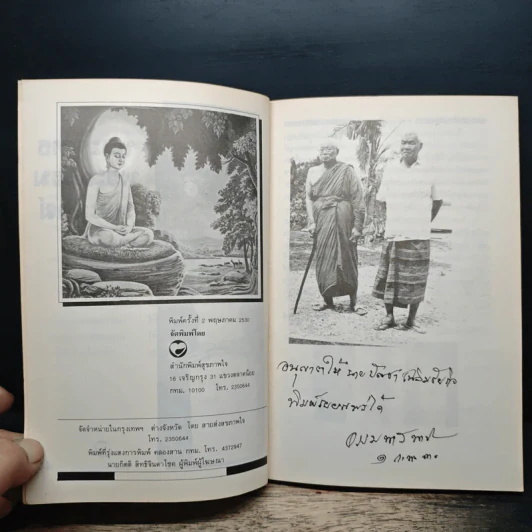 พิมพ์ครั้งที่ 2 พฤษภาคม 2530
จัดพิมพ์โดย
สำนักพิมพ์สุขภาพใจ
16 เจริญกรุง 31 แขวงตลาดน้อย
กทม. 10100 โทร. 2350644
จัดจำหน่ายในกรุงเทพฯ ต่างจังหวัด โดย สายส่งสุขภาพใจ
โทร. 2350644
พิมพ์ที่รุ่งแสงการพิมพ์ คลองสาน กทม. โทร. 4372847
นายกิตติ สิทธิจินดาโชท ผู้พิมพ์ผู้โฆษณา
อนุญาตให้ นาย บัญชา
พิมพ์